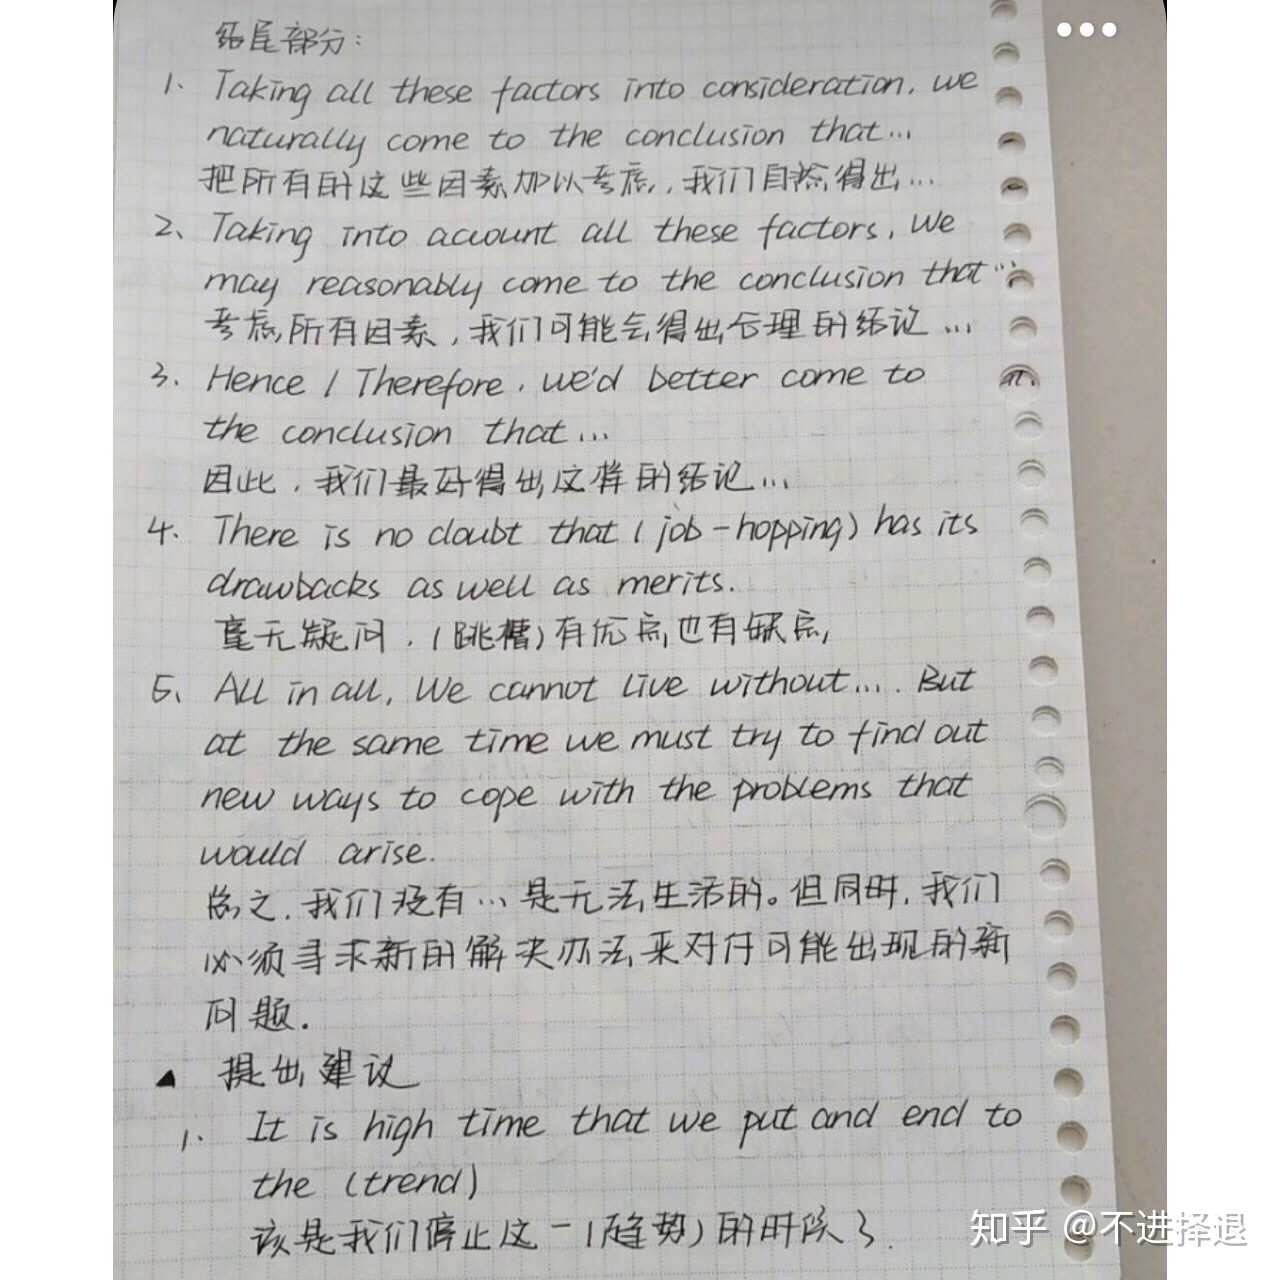 结尾部分:
1. Taking all these factors into consideration, we
naturally come to the conclusion that...
把所有的这些因素加以考虑, 我们自然得出...
2、Taking into account all these factors, we
may reasonably come to the conclusion that...
考虑所有因素, 我们可能会得出合理的结论...
3. Hence / Therefore, we'd better come to
the conclusion that...
因此, 我们最好得出这样的结论...
4. There is no doubt that (job-hopping) has its
drawbacks as well as merits.
毫无疑问, (跳槽)有优点也有缺点,
5、All in all, we cannot live without.... But
at the same time we must try to find out
new ways to cope with the problems that
would arise.
总之, 我们没有...是无法生活的。但同时, 我们
必须寻求新的解决办法来对付可能出现的新
问题.
▲ 提出建议
1. It is high time that we put and end to
the (trend)
该是我们停止这一(趋势)的时候了.
知乎 @不进择退